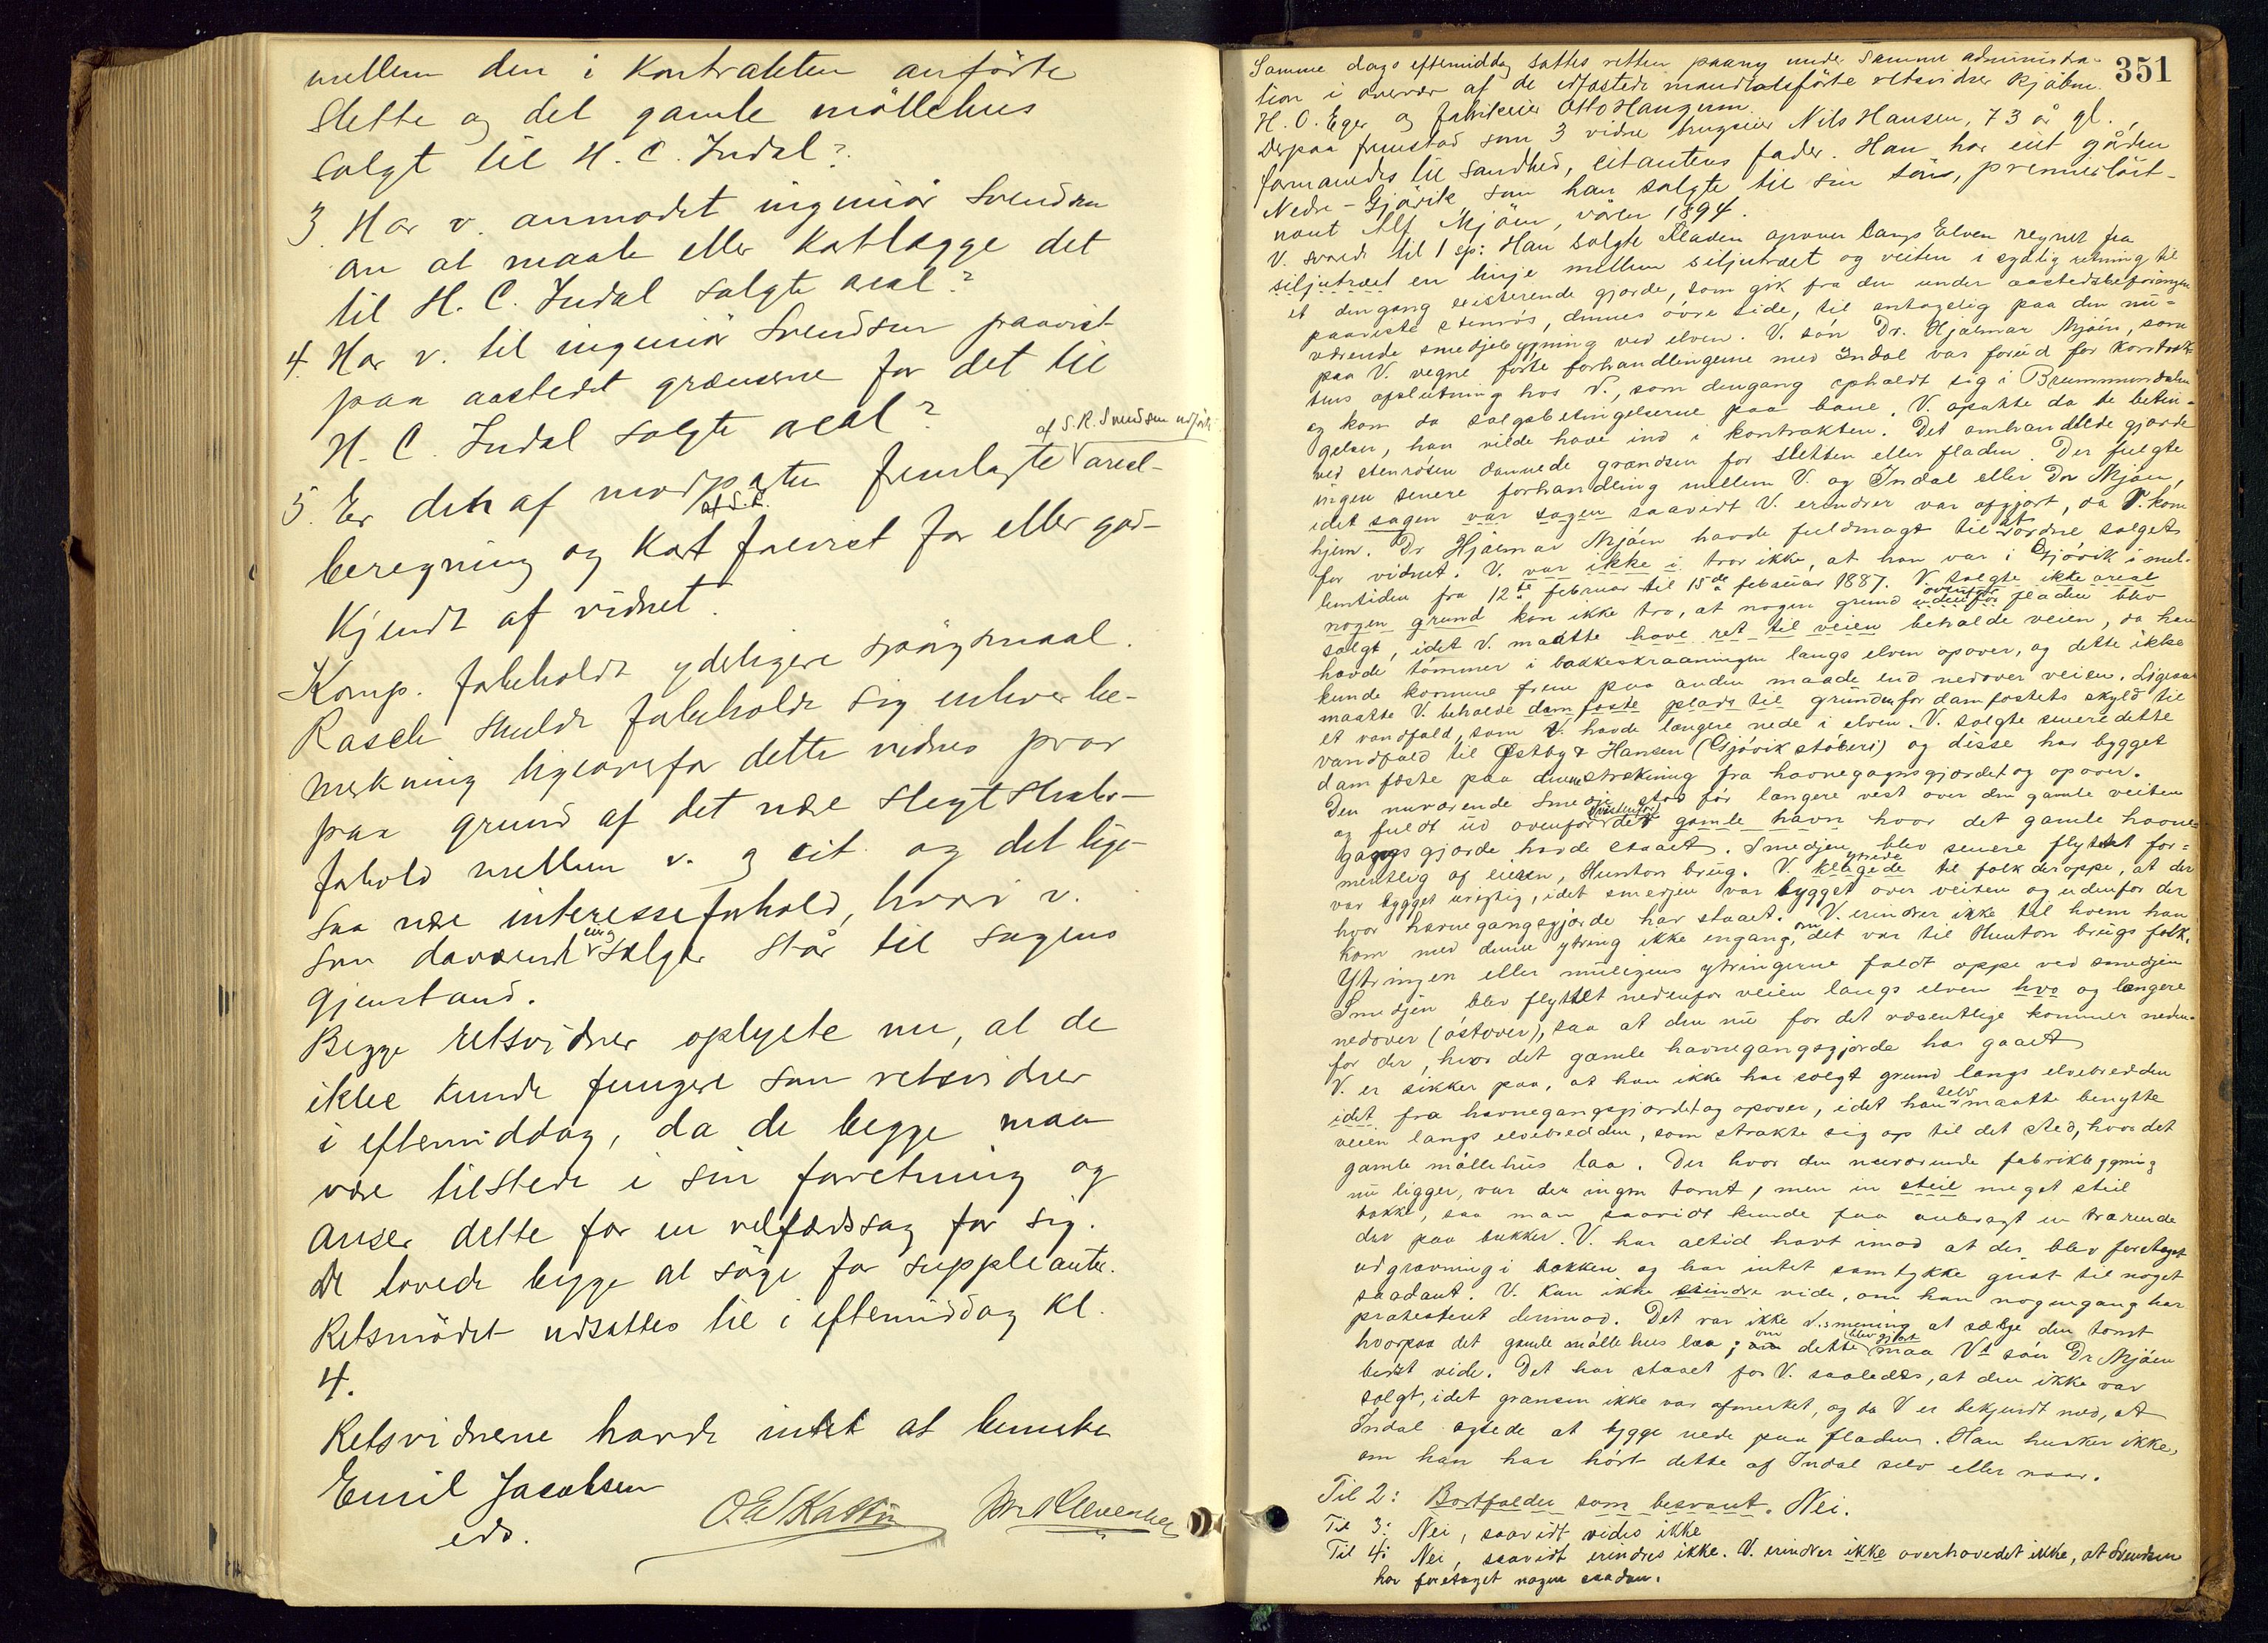 mellem den i Kontrakten anförte
Slette og det gamle möllehus
solgt til H. C. Indal?
3. Har v. anmodet ingeniör Svendsen
om at maale eller Kartlægge det
til H. C. Indal solgte areal?
4. Har v. til ingeniör Svendsen paavist
paa aastedet grænserne for det til
H. C. Indal solgte areal?
af S. R. Svendsen udförte
5. Er den af modparten fremlagte areal-
beregning og Kart forevist for eller god-
Kjendt af vidnet.
Komp. forbeholdt yderligere spörgsmaal.
Rasch skulde forbeholde sig enhver be-
merkning ligeoverfor dette vidnes prov
paa grund af det nære slegtskabs-
forhold mellem v. og cit. og det lige-
saa nære interesseforhold, hvori v.
som daværende eier og sælger står til sagens
gjenstand.
Begge retsvidner oplyste nu, at de
ikke kunde fungere som retsvidner
i eftermiddag, da de begge maa
være tilstede i sin forretning og
anser dette for en velfærdssag for sig.
De lovede begge at söge for suppleanter.
Retsmödet udsattes til i eftermiddag Kl.
4.
Retsvidnerne havde intet at bemerke
Emil Jacobsen
eds.
351
Samme dags eftermiddag sattes retten paany under samme administra-
tion i overvær af de edfæstede mandtalsförte retsvidner kjöbm.
H. O. Eger og fabrikeier Otto Haugerm.
Derpaa fremstod som 3 vidne brugseier Nils Hansen, 73 år gl.,
formanedes til sandhed, citantens fader. Han har eiet gården
Nedre-Gjövik, som han solgte til sin sön, premierlöit-
nant Alf Mjöen, våren 1894.
V. svarede til 1 sp: Han solgte Fladen opover langs Elven regnet fra
siljutræet en linje mellem siljutræet og veiten i sydlig retning til
et dengang existerende gjærde, som gik fra den under aastedsbefaringen
paaviste stenrös, dennes övre side, til antagelig paa den nu-
værende smedjebygning ved elven. V. sön Dr. Hjalmar Mjöen, som
paa V. vegne förte forhandlingerne med Indal var forud for kontrak-
tens afslutning hos V., som dengang opholdt sig i Brummunddalen
og kom da salgsbetingelserne paa bane. V. opsatte da de betin-
gelser, han vilde have ind i kontrakten. Det omhandlede gjærde
ved stenrösen dannede grændsen for sletten eller fladen. Der fulgte
ingen senere forhandling mellem V. og Indal eller Dr Mjöen,
idet sagen var sagen saavidt V. erindrer var afgjort, da V. kom
hjem. Dr Hjalmar Mjöen havde fuldmagt til at ordne salget
for vidnet. V. var ikke i tror ikke, at han var i Gjövik i mel-
lemtiden fra 12te februar til 15de februar 1887. V. solgte ikke areal
nogen grund kan ikke tro, at nogen grund udenfor ovenfor fladen blev
solgt, idet V. maatte have ret til veien beholde veien, da han
havde tömmer i bakkeskraaningen langs elven opover, og dette ikke
kunde komme frem paa anden maade end nedover veien. Ligesaa
maatte V. beholde damfæste plads til grunden for damfæstets skyld til
et vandfald, som V. havde længere nede i elven. V. solgte senere dette
vandfald til Østby & Hansen (Gjövik stöberi) og disse har bygget
damfæste paa denne strekning fra havnegangsgjærdet og opover.
Den nuværende Smedje stod för længere vest over den gamle veiten
og fuldt ud ovenfor (vestenfor) det gamle havn hvor det gamle havne-
gangsgjærde havde staaet. Smedjen blev senere flyttet for-
mentlig af eieren, Hunton brug. V. klagede ytrede til folk deroppe, at den
var bygget urigtig, idet smedjen var bygget over veiten og udenfor der
hvor havnegangsgjærde har staaet. V. erindrer ikke til hvem han
kom med denne ytring ikke engang, om det var til Hunton brugs folk.
Ytringen eller muligens ytringerne faldt oppe ved smedjen
Smedjen blev flyttet nedenfor veien langs elven hvo og længere
nedover (östover), saa at den nu for det væsentlige kommer neden-
for der, hvor det gamle havnegangsgjærde har gaaet
V. er sikker paa, at han ikke har solgt grund langs elvebredden
idet fra havnegangsgjærdet og opover, idet han selv maatte benytte
veien langs elvebredden, som strakte sig op til det sted, hvor det
gamle möllehus laa. Der hvor den nuværende fabrikbygning
nu ligger, var der ingen tomt, men en steil meget steil
bakke, saa man saavidt kunde faa anbragt en trærende
der paa bukker. V. har altid havt imod at der blev foretaget
udgravning i bakken og har intet samtykke givet til noget
saadant. V. kan ikke erindre vide, om han nogengang har
protesteret derimod. Det var ikke V.s mening at sælge den tomt
hvorpaa det gamle möllehus laa; om dette blev gjort maa Vs sön Dr Mjöen
bedst vide. Det har staaet for V. saaledes, at den ikke var
solgt, idet grænsen ikke var afmerket, og da V er bekjendt med, at
Indal agtede at bygge nede paa fladen. Han husker ikke,
om han har hört dette af Indal selv eller naar.
Til 2: Bortfalder som besvaret. Nei.
Til 3: Nei, saavidt vides ikke
Til 4: Nei, saavidt erindres ikke. V. erindrer ikke overhovedet ikke, at Svendsen
har foretaget nogen saadan.